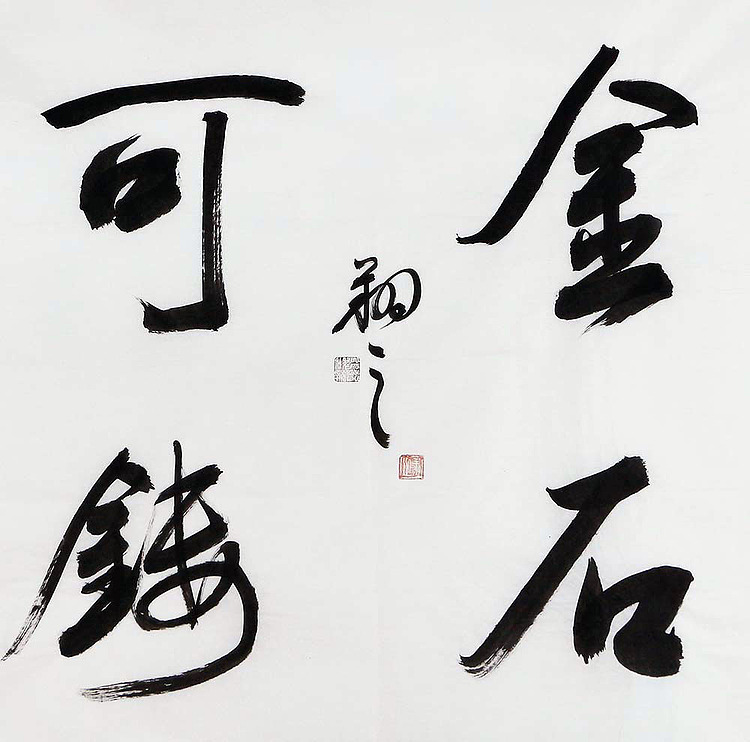 金石
可鏤
翱之